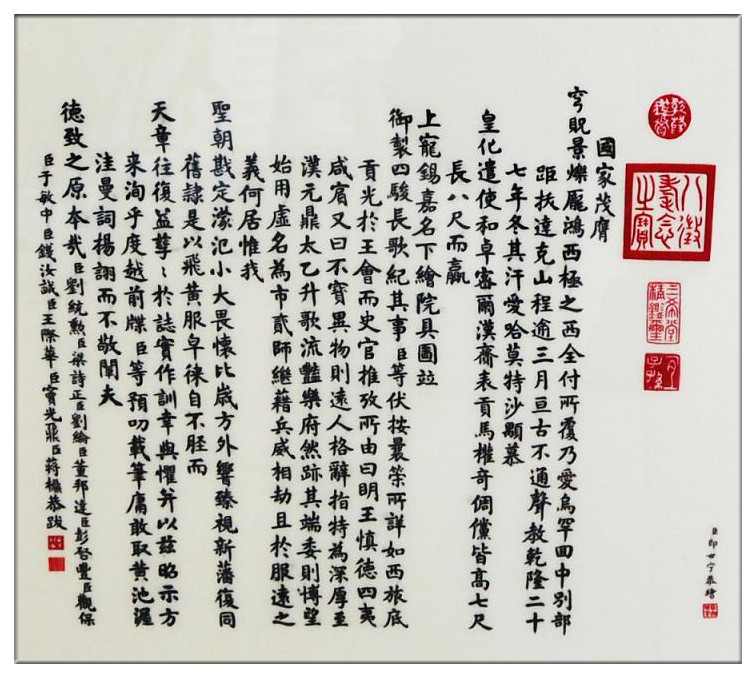 乾隆鑒賞
八徵耄念之寶
三希堂精鑑璽
宜子孫
臣郎世宁恭繪
國家茂膺
穹貺景爍厖鴻西極之西全付所覆乃愛烏罕回中別部
距扶達克山程逾三月亘古不通聲教乾隆二十
七年冬其汗愛哈莫特沙顯慕
皇化遣使和卓審爾漢齎表貢馬權奇倜儻皆高七尺
長八尺而羸
上寵錫嘉名下繪院具圖竝
御製四駿長歌紀其事臣等伏按曩策所詳如西旅底
貢光於王會而史官推攷所由曰明王慎德四夷
咸賓又曰不寶異物則遠人格辭指特為深厚至
漢元鼎太乙升歌流豔樂府然跡其端委則慱望
始用虛名為市貳師繼藉兵威相劫且於服遠之
義何居惟我
聖朝戡定濛汜小大畏懷比歲方外響臻視新藩復同
舊隸是以飛黃服皁徠自不脛而
天章往復益孳〻於誌實作訓幸與懼并以茲昭示方
來洵乎度越前牒臣等預叨載筆庸敢取黃池渥
洼曼詞揚詡而不敬闡夫
德致之原本哉臣劉統勲臣梁詩正臣劉綸臣董邦達臣彭啓豐臣觀保
臣于敏中臣錢汝誠臣王際華臣竇光鼐臣蔣檙恭跋